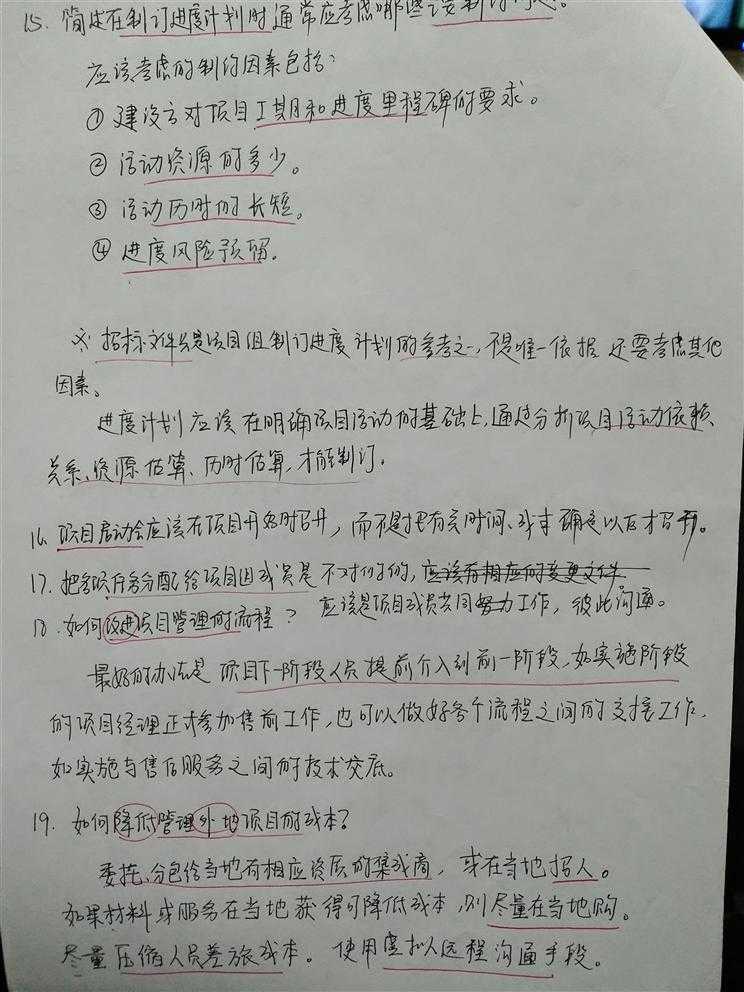 15. 简述在制订进度计划时通常应考虑哪些
应该考虑的制约因素包括:
① 建设方对项目工期和进度里程碑的要求。
② 活动资源的多少。
③ 活动历时的长短。
④ 进度风险预留.
※ 招标文件只是项目组制订进度计划的参考之一,不是唯一依据 还要考虑其他
因素。
进度计划应该在明确项目活动的基础上,通过分析项目活动依赖
关系、资源估算、历时估算,才能制订.
16. 项目启动会应该在项目开始时召开,而不是把有关时间、成本确定以后才召开。
17. 把多项任务分配给项目团成员是不对的的, 应该有相应的变更文件
应该是项目成员共同努力工作,彼此沟通。
18. 如何改进项目管理的流程?
最好的办法是 项目下一阶段人员提前介入到前一阶段,如实施阶段
的项目经理正式参加售前工作,也可以做好各个流程之间的交接工作,
如实施与售后服务之间的技术交底。
19. 如何降低管理外地项目的成本?
委托、分包给当地有相应资质的集成商, 或在当地招人。
如果材料或服务在当地获得可降低成本,则尽量在当地购。
尽量压缩人员差旅成本。 使用虚拟人远程沟通手段。